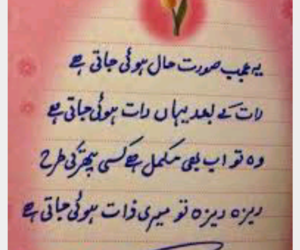 یہ عجب صورت حال ہوئی جاتی ہے
رات کے بعد یہاں رات ہوئی جاتی ہے
وہ تو اب بھی مکمل ہے کسی پتھر کی طرح
ریزہ ریزہ تو میری ذات ہوئی جاتی ہے